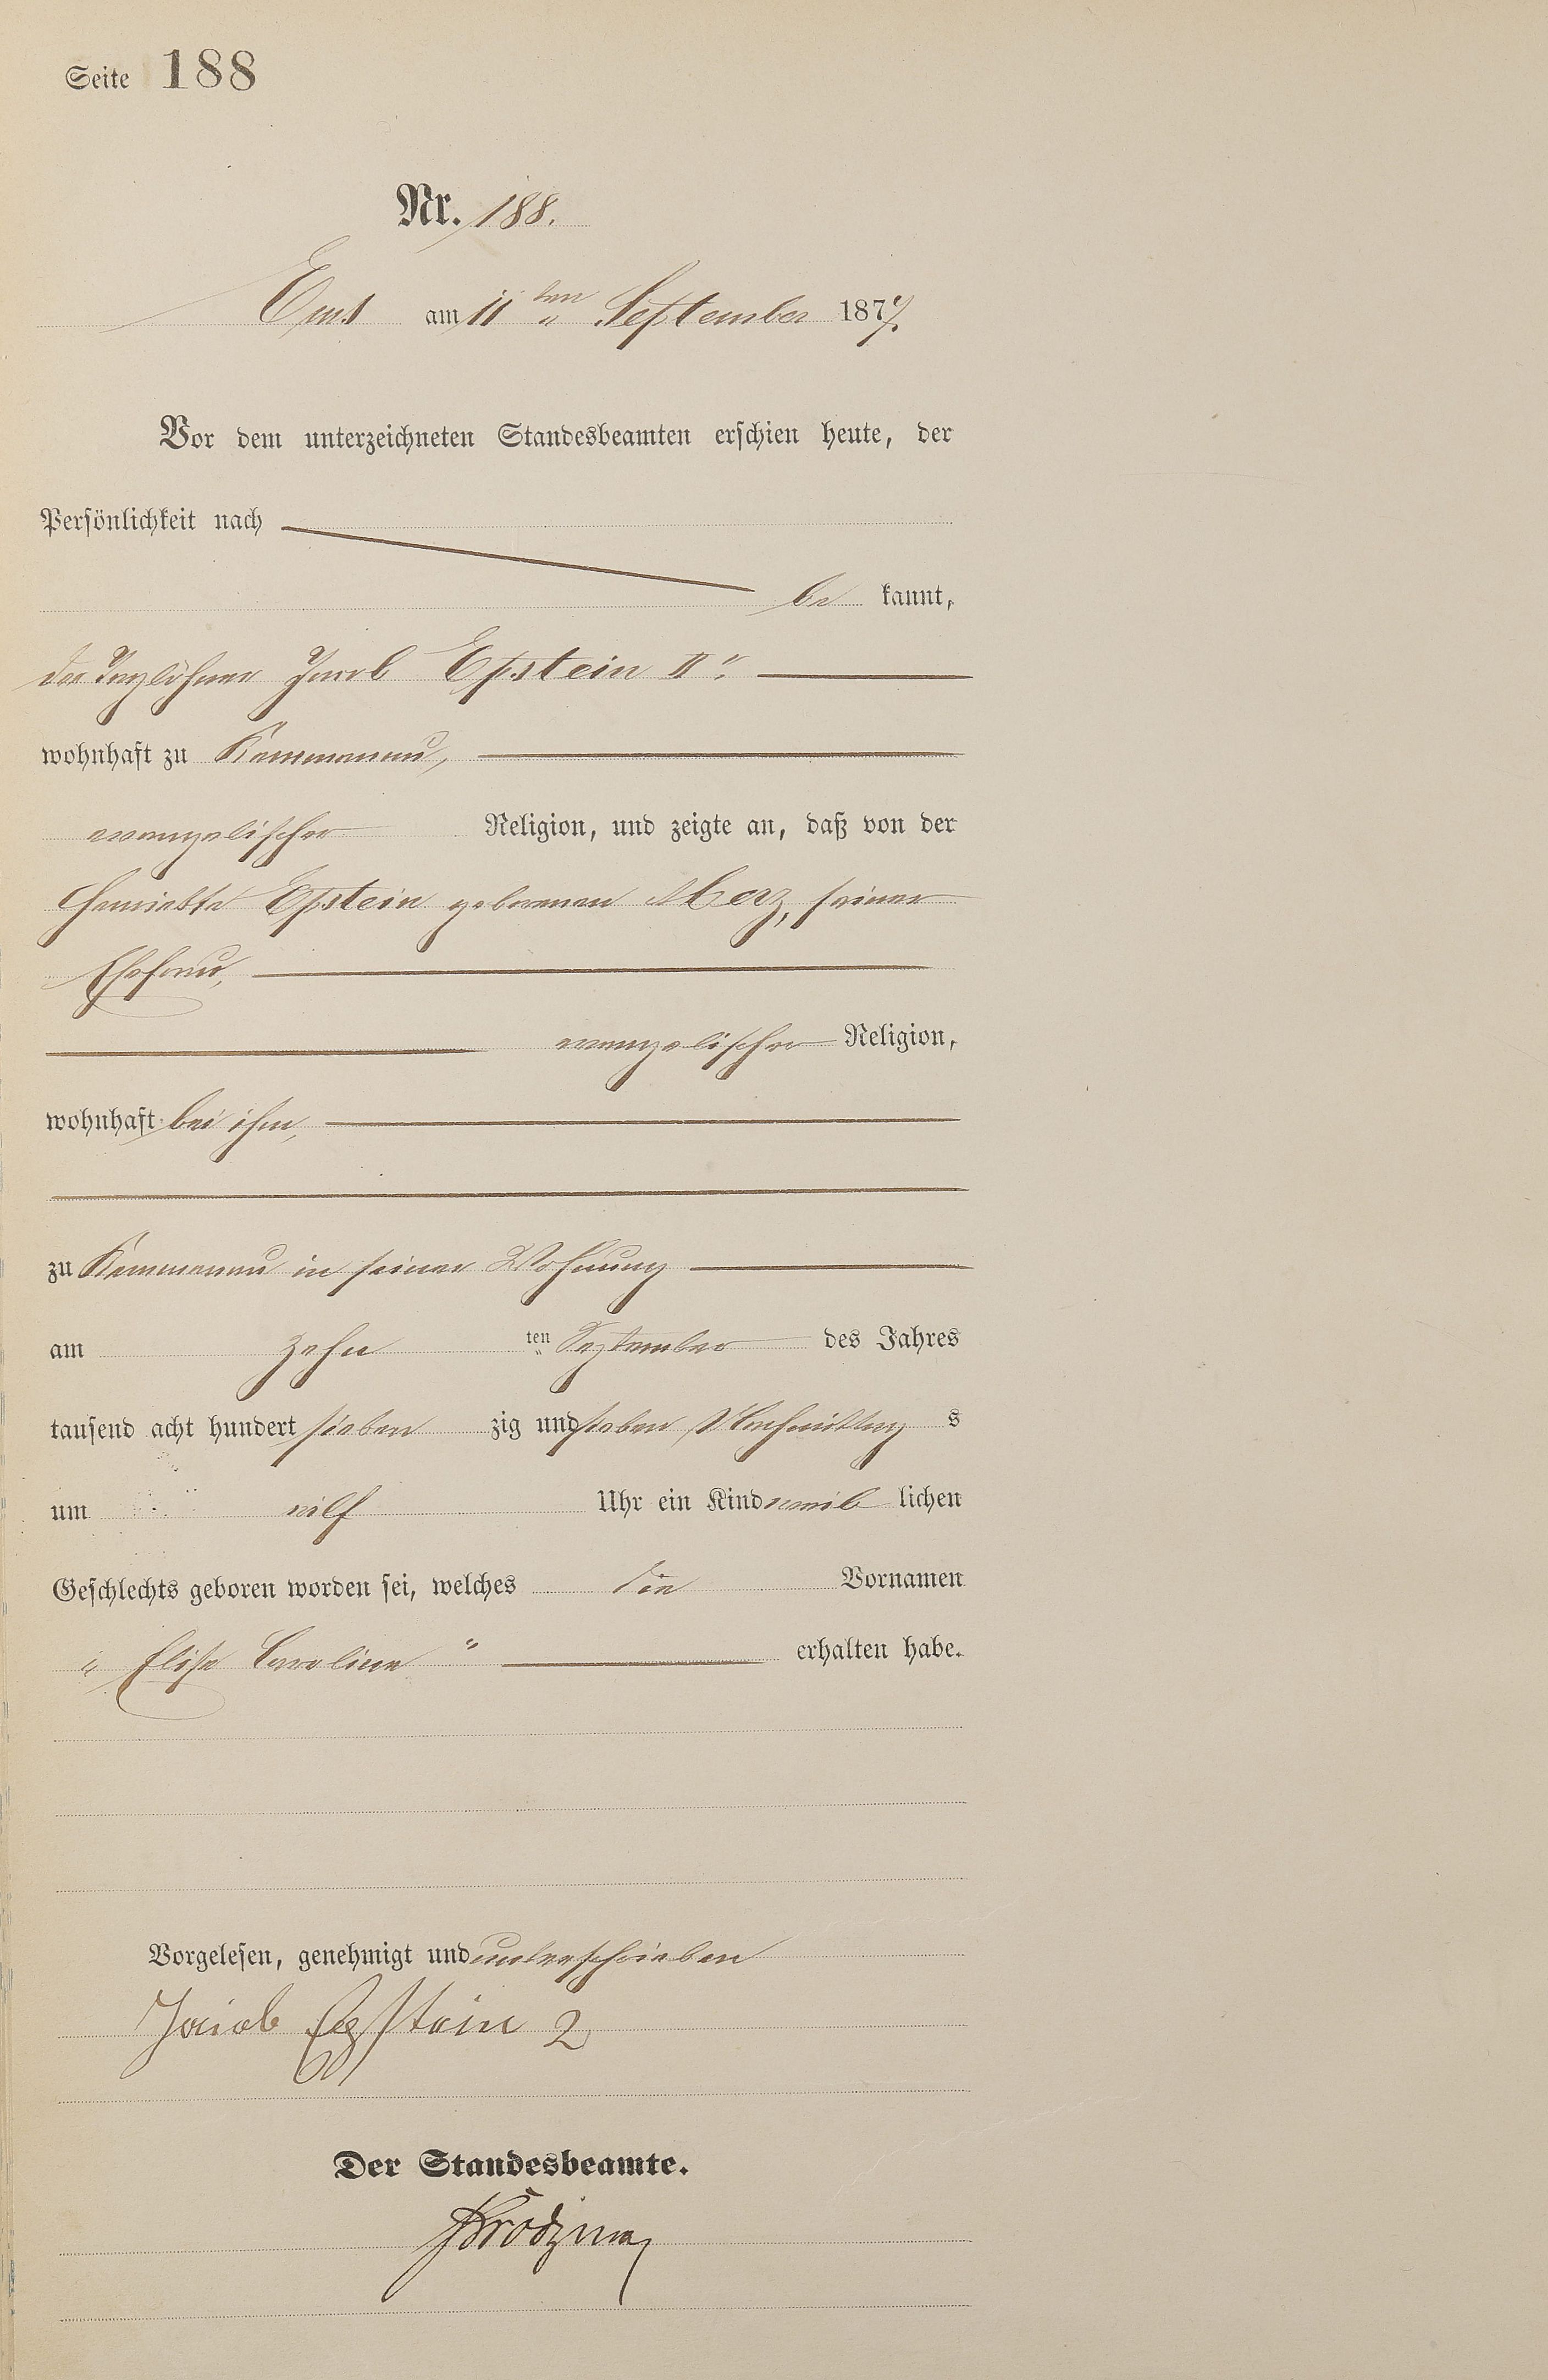 Seite 188
Nr. 188.
Ems am 11 ten September 1877.
Vor dem unterzeichneten Standesbeamten erschien heute, der
Persönlichkeit nach
be kannt,
der Taglöhner Jacob Epstein II r.
wohnhaft zu Kemmenau,
evangelischer Religion, und zeigte an, daß von der
Henriette Epstein geborenen Merz, seiner
Ehefrau,
evangelischer Religion,
wohnhaft bei ihm,
zu Kemmenau in seiner Wohnung
am zehn ten September des Jahres
tausend acht hundert sieben zig und sieben Vormittag s
um eilf Uhr ein Kind weib lichen
Geschlechts geboren worden sei, welches die Vornamen
„ Elise Caroline “ erhalten habe.
Vorgelesen, genehmigt und unterschrieben
Jacob Epstein 2
Der Standesbeamte.